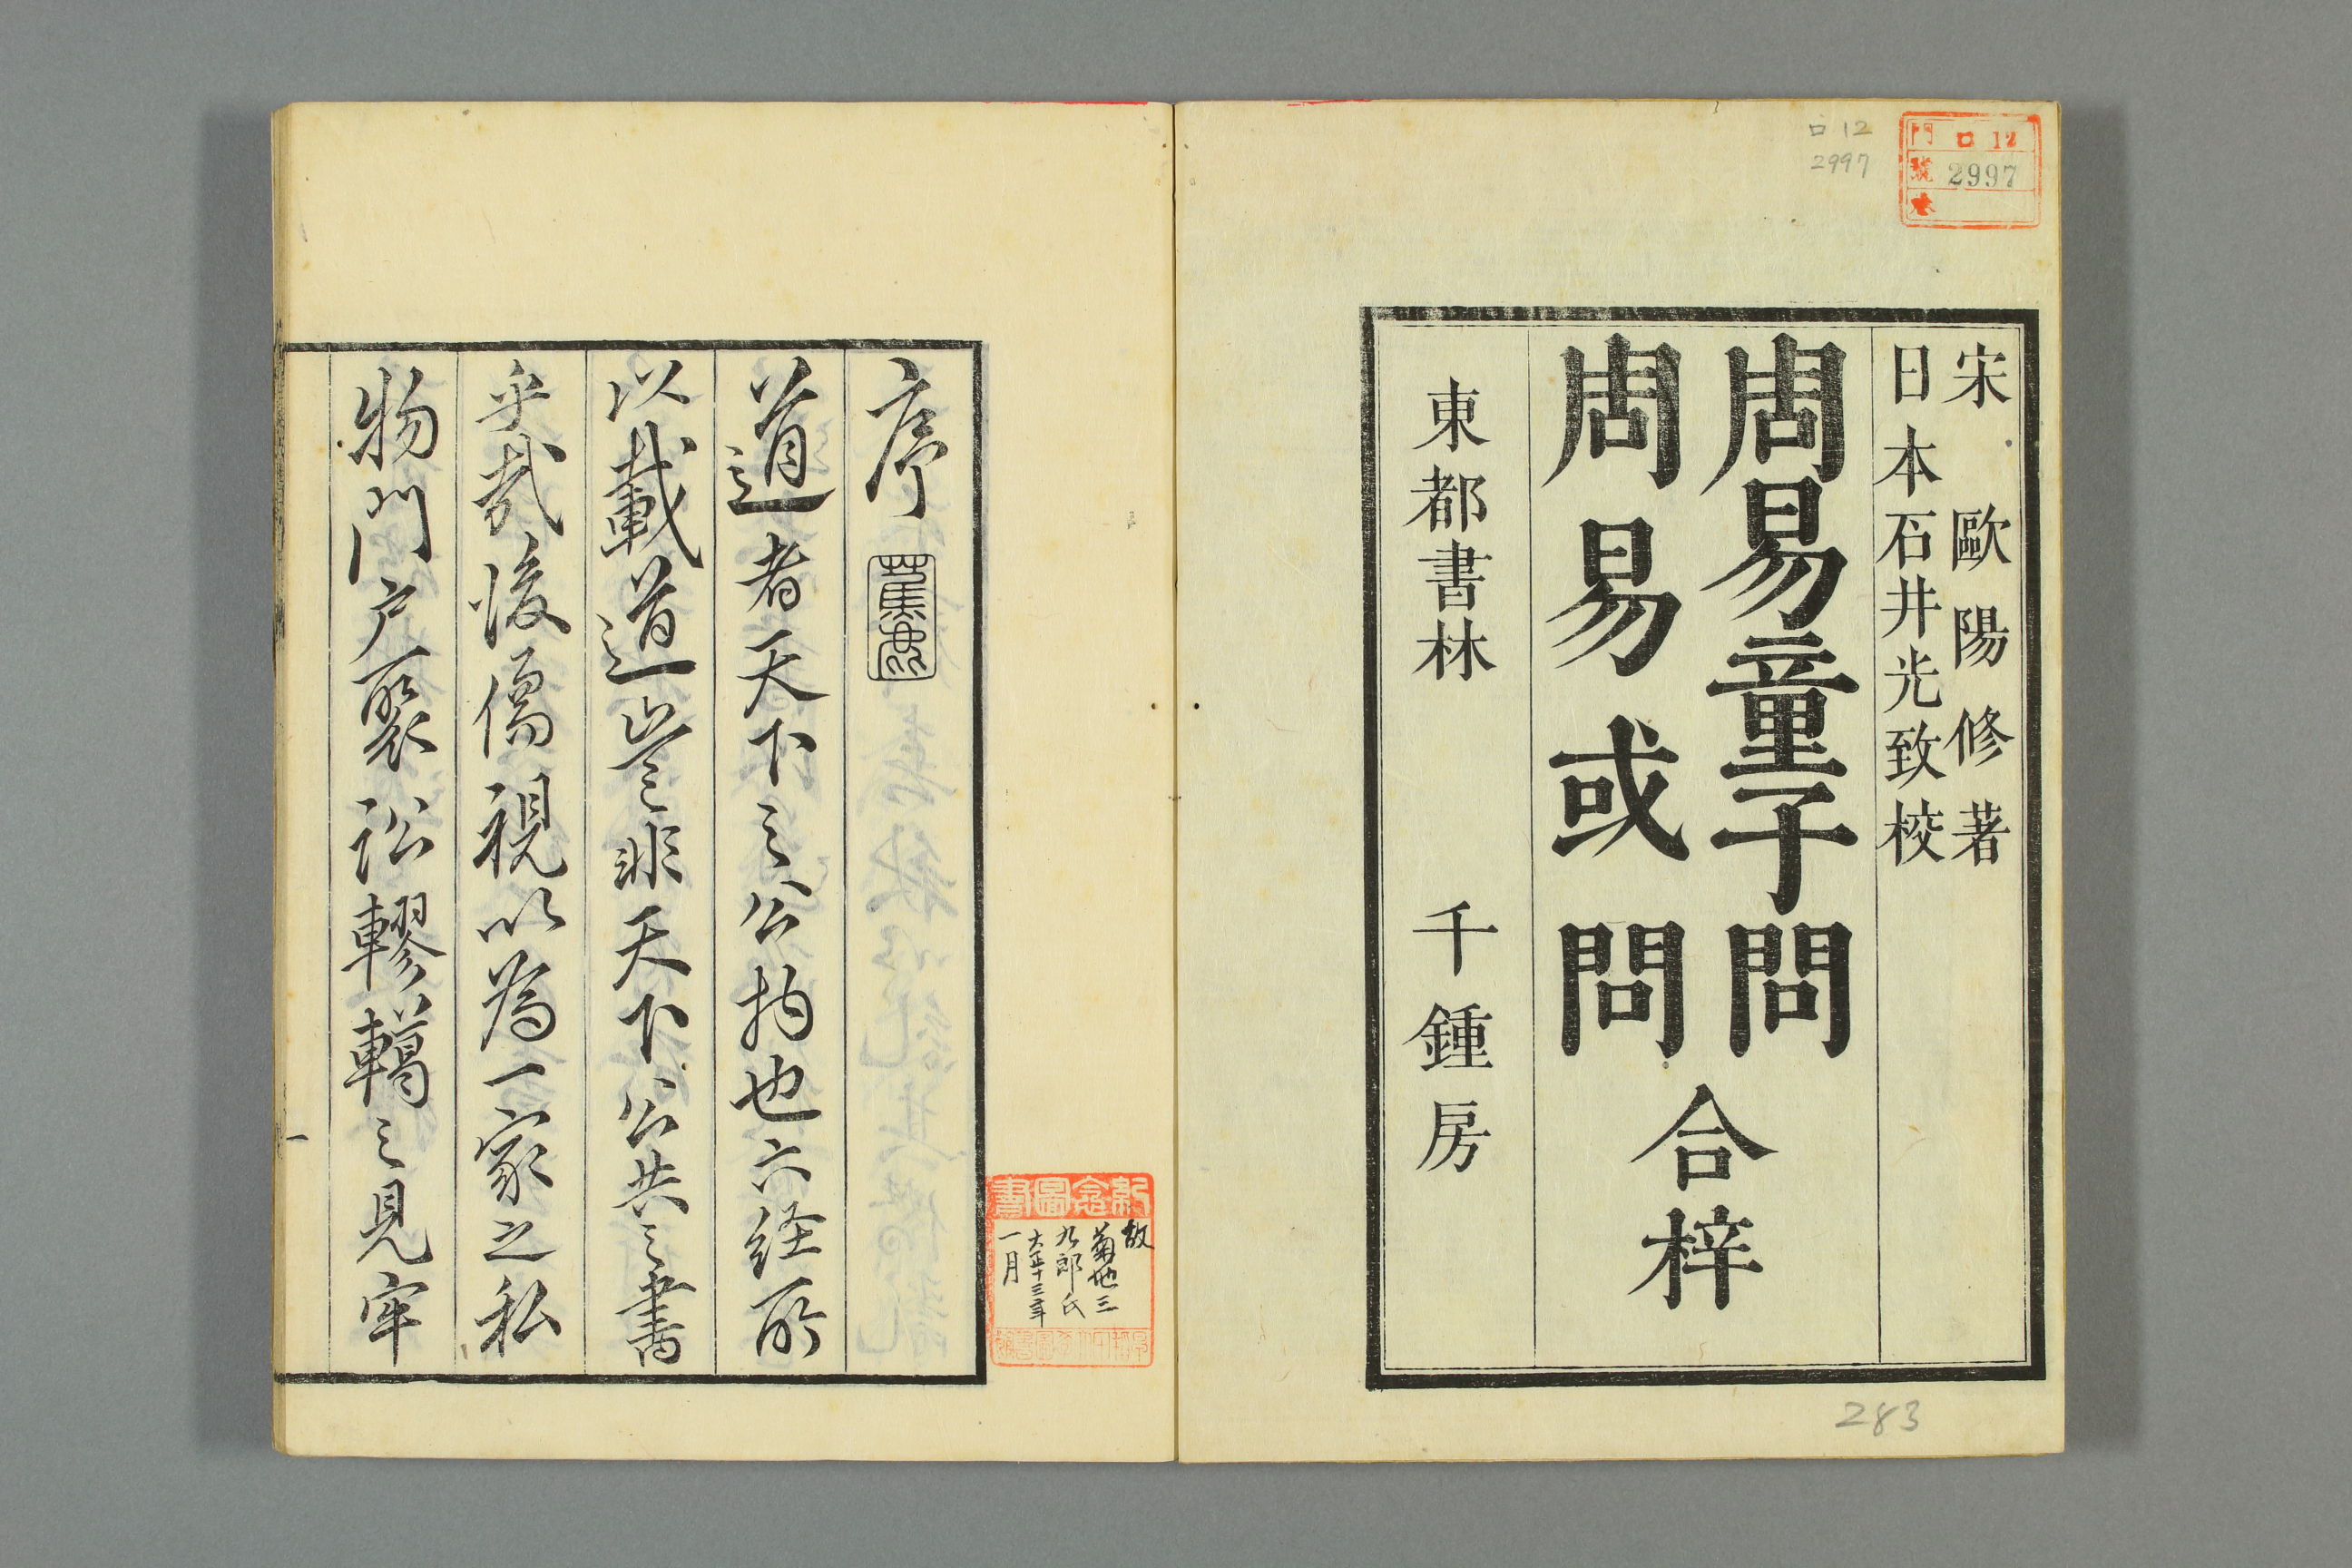 門 ロ 12
號 2997
卷
ロ 12
2997
宋 歐陽修著
日本石井光致校
周易童子問
周易或問
合梓
東都書林 千鍾房
283
序
道者天下之公物也六経所
以載道豈非天下公共之書
乎哉後儒視以為一家之私
物門戸聚訟轇轕之見牢
一
故
菊池三
九郎氏
大正十三年
一月